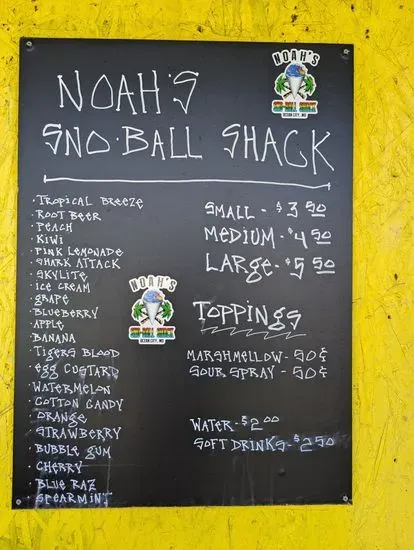 NOAH'S
SNO-BALL SHACK
NOAH'S
SNO-BALL SHACK
OCEAN CITY, MD
· TROPICAL BREEZE
· ROOT BEER
· PEACH
· KIWI
· PINK LEMONADE
· SHARK ATTACK
· SKYLITE
· ICE CREAM
· GRAPE
· BLUEBERRY
· APPLE
· BANANA
· TIGERS BLOOD
· EGG CUSTARD
· WATERMELON
· COTTON CANDY
· ORANGE
· STRAWBERRY
· BUBBLE GUM
· CHERRY
· BLUE RAZ
· SPEARMINT
SMALL - $3 50
MEDIUM - $4 50
LARGE - $5 50
NOAH'S
SNO-BALL SHACK
OCEAN CITY, MD
TOPPINGS
MARSHMELLOW - 50¢
SOUR SPRAY - 50¢
WATER - $2 00
SOFT DRINKS - $2 50